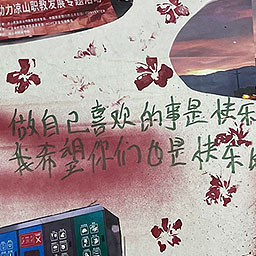 助力凉山职教发展专题活动
做自己喜欢的事是快乐
我希望你们也是快乐的